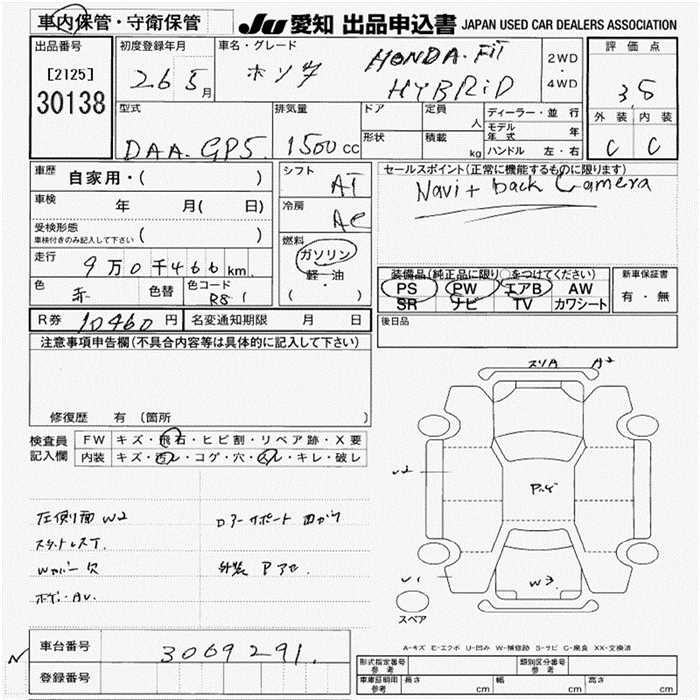 車内保管・守衛保管
JU 愛知 出品申込書 JAPAN USED CAR DEALERS ASSOCIATION
出品番号
[2125]
30138
初度登録年月
26 5月
車名・グレード
ホンダ HONDA. FIT
HYBRID
2WD
・
4WD
評価点
3.5
外装 内装
C C
型式
DAA. GP5.
排気量
1500cc
ドア
形状
定員
人
積載
kg
ディーラー・並行
モデル年式 年
ハンドル 左・右
車歴
自家用・( )
車検
年 月( 日)
受検形態
車検付きのみ記入して下さい ( )
走行
9万0千466km.
色
赤
色替
色コード
R81
シフト
AT
冷房
AC
燃料
ガソリン
軽・油
( )
セールスポイント(正常に機能するものに限ります)
Navi + back Camera
装備品(純正品に限り○をつけてください)
PS PW エアB AW
SR ナビ TV カワシート
新車保証書
有・無
R券 10460円
名変通知期限 月 日
後日品
注意事項申告欄(不具合内容等は具体的に記入して下さい)
修復歴 有(箇所 )
検査員記入欄
FW キズ・飛石・ヒビ割・リペア跡・X要
内装 キズ・汚レ・コゲ・穴・スレ・キレ・破レ
左側面 W2
スタットレスT.
外装 Pアセ.
スリA A2
W2
P.ゲ
W3
スペア
A-キズ E-エクボ U-凹み W-補修跡 S-サビ C-腐食 XX-交換済
車台番号
3069291.
登録番号
形式指定番号 参考
類別区分番号 参考
車庫証明用 参考 長さ cm 幅 cm 高さ cm